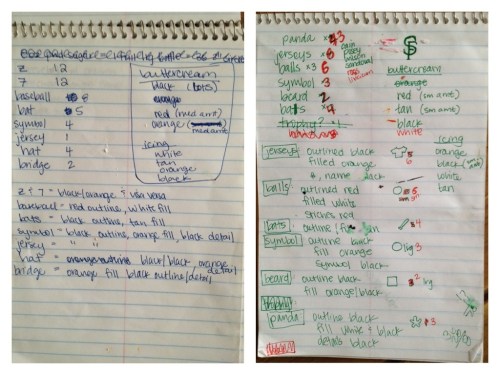 z 12
7 12
baseball 8
bat 5
symbol 4
jersey 1
hat 4
bridge 2
buttercream
black (lots)
orange
red (med amt)
orange
med amt
icing
white
tan
orange
black
z & 7 = black/orange & visa versa
baseball = red outline, white fill
bats = black outline, tan fill
symbol = black outline, orange fill, black detail
jersey = " "
hat = black/black orange detail
bridge = orange fill black outline/detail
panda = 3
jerseys = 8
balls = 6
symbol 3
beard 2
bats 4
cain
posey
sandoval
SF
buttercream
orange
red (sm amt)
tan (sm amt)
black
white
icing
orange
black
white
tan
jerseys outlined black
filled orange
#, name black
6
balls outlined red
filled white
stiches red
5
bats outline/fill tan
4
symbol outline black
fill orange
symbol black
3
beard outline black
fill orange/black
2
panda outline black
fill white & black
details black
3